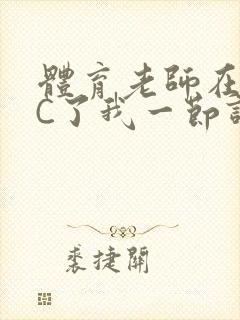 體育老師在
C了我一節
裘捷開